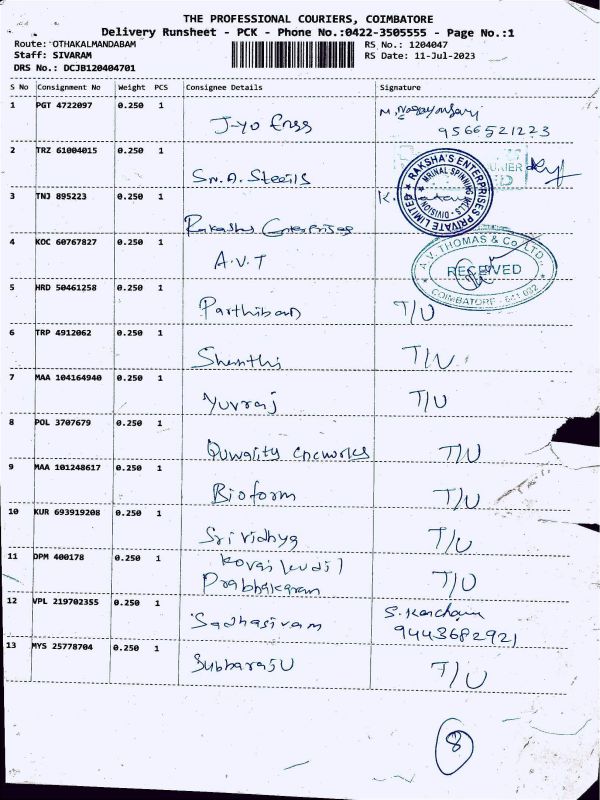 THE PROFESSIONAL COURIERS, COIMBATORE
Delivery Runsheet - PCK - Phone No.:0422-3505555 - Page No.:1
Route: OTHAKALMANDABAM RS No.: 1204047
Staff: SIVARAM RS Date: 11-Jul-2023
DRS No.: DCJB120404701
S No Consignment No Weight PCS Consignee Details Signature
1 PGT 4722097 0.250 1
J-yo Engg 9566521223
2 TRZ 61004015 0.250 1
Sri.A. Steels
RAKSHA'S ENTERPRISES PRIVATE LIMITED
MRINAL SPINNING MILLS - DIVISION
3 TNJ 895223 0.250 1 K.
Rakasha Enterprises
4 KOC 60767827 0.250 1
A.V.T
A.V. THOMAS & Co. LTD.,
RECEIVED
COIMBATORE - 641 032
5 HRD 50461258 0.250 1
Parthiban T/U
6 TRP 4912062 0.250 1
Shanthi T/U
7 MAA 104164940 0.250 1
Yuvraj T/U
8 POL 3707679 0.250 1
Quwality T/U
9 MAA 101248617 0.250 1
Bioform T/U
10 KUR 693919208 0.250 1
Srividhya T/U
11 DPM 400178 0.250 1
Kovai
Prabhakaran T/U
12 VPL 219702355 0.250 1
Sadhasivam 9443682921
13 MYS 25778704 0.250 1
Subbarasu T/U
8